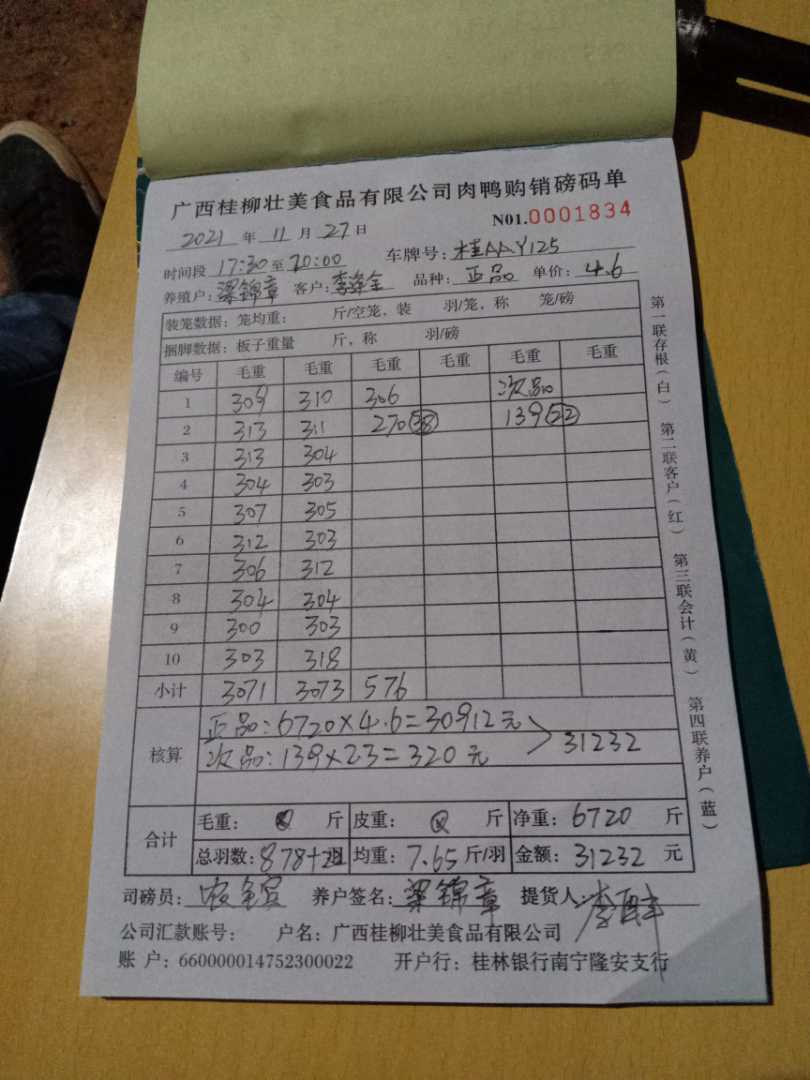 广西桂柳壮美食品有限公司肉鸭购销磅码单
N01.0001834
2021 年 11 月 27 日
时间段 17:30 至 20:00 车牌号: 桂AA.Y125
养殖户: 梁锦章 客户: 李 全 品种: 正品 单价: 4.6
装笼数据: 笼均重: 斤/空笼, 装 羽/笼, 称 笼/磅
捆脚数据: 板子重量 斤, 称 羽/磅
编号 毛重 毛重 毛重 毛重 毛重 毛重
1 309 310 306 次品
2 313 311 270(38) 139(22)
3 313 304
4 304 303
5 307 305
6 312 303
7 306 312
8 304 304
9 300 303
10 303 318
小计 3071 3073 576
核算
正品:6720×4.6=30912元
次品:139×23=320元
31232
合计
毛重: 斤 皮重: 斤 净重: 6720 斤
总羽数: 878+22 均重: 7.65 斤/羽 金额: 31232 元
司磅员: 养户签名: 梁锦章 提货人: 李
公司汇款账号: 户名: 广西桂柳壮美食品有限公司
账 户: 660000014752300022 开户行: 桂林银行南宁隆安支行
第一联存根(白) 第二联客户(红) 第三联会计(黄) 第四联养户(蓝)